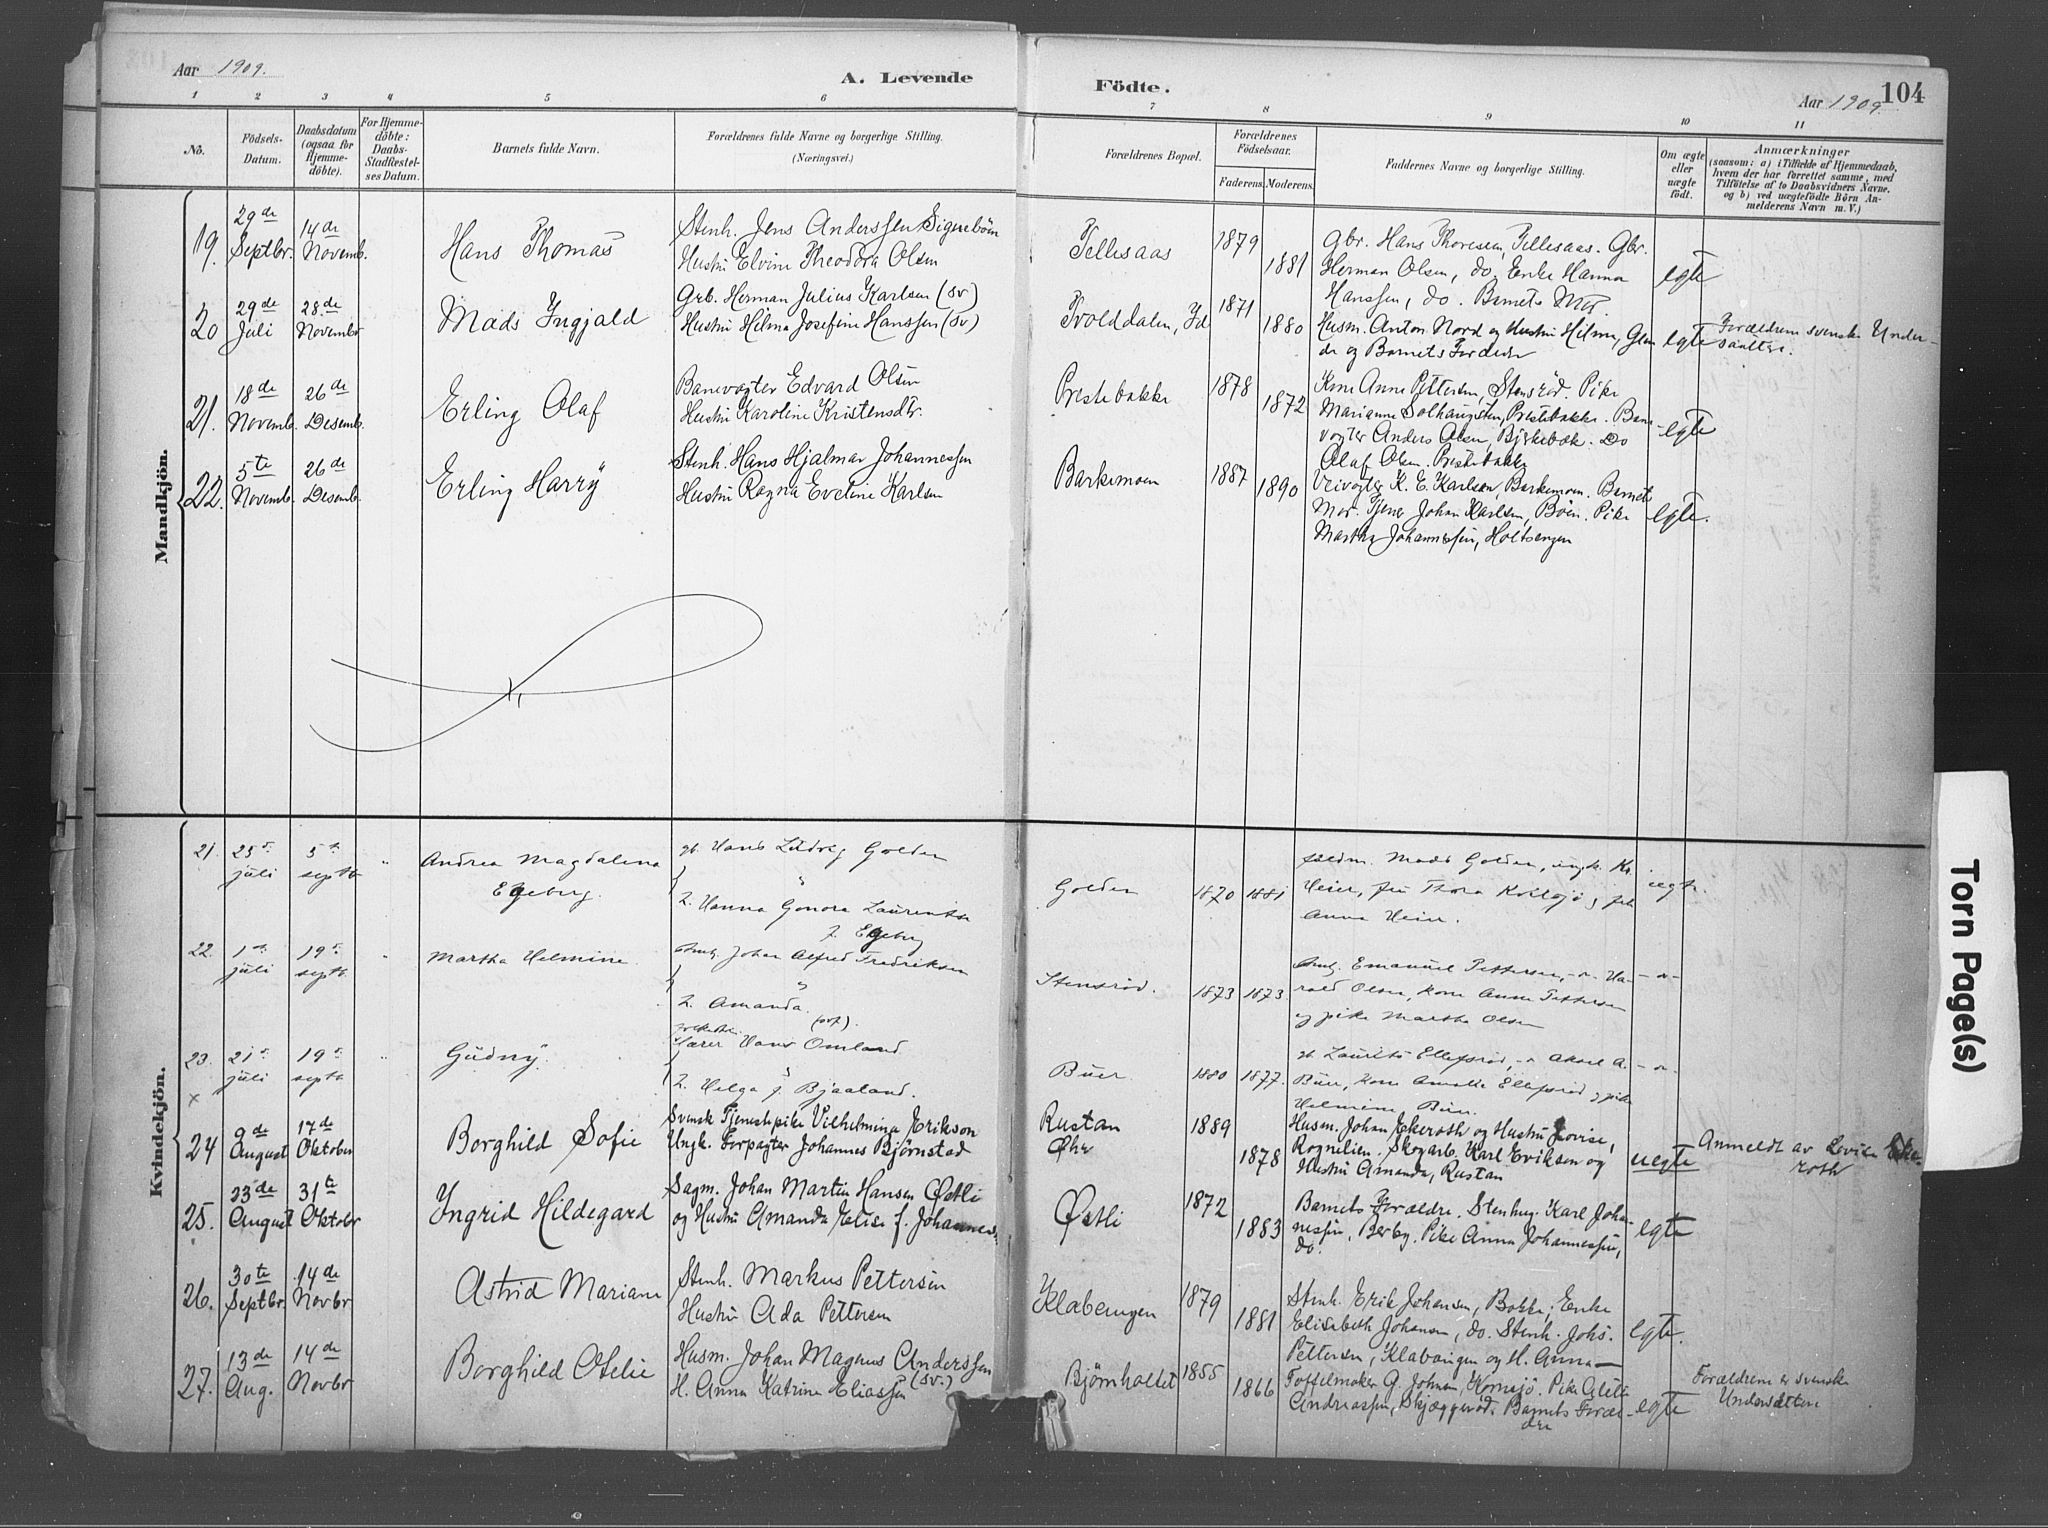 Aar 1909.
A. Levende
Födte.
Aar 1909.
104
1 2 3 4 5 6 7 8 9 10 11
No.
Födsels-
Datum.
Daabsdatum
(ogsaa for
Hjemme-
döbte).
For Hjemme-
döbte:
Daabs-
Stadfestel-
ses Datum.
Barnets fulde Navn.
Forældrenes fulde Navne og borgerlige Stilling.
(Næringsvei.)
Forældrenes Bopæl.
Forældrenes
Födselsaar.
Faderens. Moderens.
Faddernes Navne og borgerlige Stilling.
Om ægte
eller
uægte
födt.
Anmærkninger
(saasom: a) i Tilfælde af Hjemmedaab,
hvem der har forrettet samme, med
Tilföielse af to Daabsvidners Navne.
og b) ved uægtefödte Börn An-
melderens Navn m. V.)
Mandkjön.
19. 29de Septbr. 14de Novemb. Hans Thomas
Stenh. Jens Anderssen Signeböen
Hustru Elvine Theodora Olsen
Tellesaas 1879 1881
Gbr. Hans Thoresen, Tellesaas. Gbr.
Herman Olsen, do. Enke Hanna
Hanssen, do. Barnets Mor.
egte
20 29de Juli 28de Novembr Mads Ingjald
Grb. Herman Julius Karlsen (sv)
Hustru Hilma Josefine Hanssen (sv)
Trolddalen, Id 1871 1880
Husm. Anton Nord og Hustru Hilma,
og Barnets
egte
Forældrene svenske Under-
saatter.
21. 18de Novemb. 26de Desemb. Erling Olaf
Banevogter Edvard Olsen
Hustru Karoline Kristensdtr.
Prestebakke 1878 1872
Kone Anne Pettersen, Stensröd. Pike
Marianne Solhaugsten, Prestebakke. Bane-
vogter Anders Olsen, Bjerkebæk. Do
Olaf Olsen, Prestebakke
egte
22. 5te Novemb. 26de Desemb. Erling Harry
Stenh. Hans Hjalmar Johannessen
Hustru Ragna Eveline Karlsen
Barkemoen 1887 1890
K. E. Karlsen, Barkemoen. Barnets
Mor. Tjener Johan Karlsen, Böen. Pike
Martha Johannessen, Holtsengen
egte.
Kvindekjön.
21. 25de juli 5te septb " Andrea Magdalena
Egeberg.
gb. Hans Ludvig Golden
2. Hanna Gonora Laurentse
f. Egeberg
Golden 1870 1881
Mads Golden, ungk. Kr.
Heier, frk Thora
Anna Heier.
22. 1ste juli 19de septb. " Martha Helmine.
Johan Alfred Fredriksen
2. Amanda.
Stensröd. 1873 1873.
Emanuel Pettersen, -"- Ha-
rald Olsen, kone Anne Pettersen
og pike Martha Olsen
-"-
23. 21de juli 19de septb " Gudny.
Lærer Hans Omland
2. Helga f. Bjaaland.
Buer 1880 1877.
gb. Laurits Ellefsröd, -"- Aksel A.
Buer, kone Amalie Ellefsröd og pike
Helmine Buer.
-"-
×
24 9de August 17de Oktober Borghild Sofie
Svensk Tjenestepike Vilhelmina Erikson
Ungk. Forpagter Johannes Bjørnstad
Rustan
Øhr
1889 1878
Husm. Johan Ekeroth og Hustru Lovise,
Rognelien. Skogarb. Karl Erikson og
Hustru Amanda, Rustan
uegte
Anmeldt av Lovise Eke-
roth
25. 23de August 31te Oktobr Ingrid Hildegard
Sagm. Johan Martin Hansen Østli
og Hustru Amanda Elise f. Johannes-
Østli 1872 1883
Barnets Forældre. Stenhug. Karl Joha-
nessen, Berby. Pike Anna Johannessen,
do.
egte
26. 30te Septbr. 14de Novbr Astrid Mariane
Stenh. Markus Pettersen
Hustru Ada Pettersen
Klabengen 1879 1881
Stenh. Erik Johansen, Bakke. Enke
Elisabeth Johansen, do. Stenh. Johs.
Pettersen, Klabengen og H. Anna
egte.
27. 13de Aug. 14de Novbr Borghild Otelie
Husm. Johan Magnus Anderssen
H. Anna Katrine Eliassen (sv.)
Bjørnholtet 1855 1866
Toffelmaker G. Johnsen, Kornsjö. Pike
Andreassen, Skjæggeröd. Barnets Foræl-
dre
egte
Forældrene er svenske
Undersåttere
Torn Page(s)